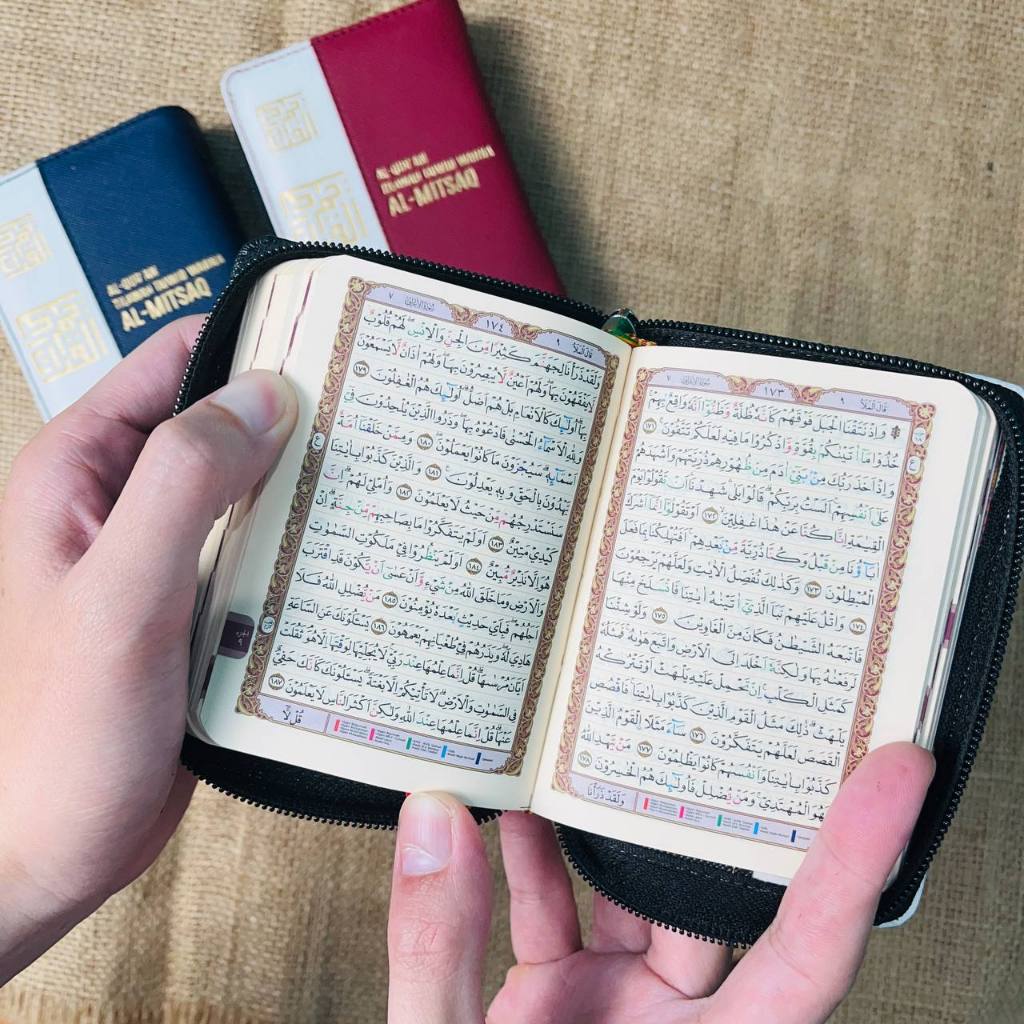 AL-QUR'AN
AL-MITSAQ
AL-QUR'AN
AL-MITSAQ
٧ سُورَةُ الْأَعْرَافِ ١٧٣ قَالَ الْمَلَأُ ٩
۞ وَإِذْ نَتَقْنَا الْجَبَلَ فَوْقَهُمْ كَأَنَّهُ ظُلَّةٌ وَظَنُّوٓا أَنَّهُ وَاقِعٌۢ بِهِمْ
خُذُوا مَآ ءَاتَيْنَٰكُم بِقُوَّةٍ وَاذْكُرُوا مَا فِيهِ لَعَلَّكُمْ تَتَّقُونَ ١٧١
وَإِذْ أَخَذَ رَبُّكَ مِنۢ بَنِىٓ ءَادَمَ مِن ظُهُورِهِمْ ذُرِّيَّتَهُمْ وَأَشْهَدَهُمْ
عَلَىٰٓ أَنفُسِهِمْ أَلَسْتُ بِرَبِّكُمْ قَالُوا بَلَىٰ شَهِدْنَآ أَن تَقُولُوا يَوْمَ
الْقِيَٰمَةِ إِنَّا كُنَّا عَنْ هَٰذَا غَٰفِلِينَ ١٧٢ أَوْ تَقُولُوٓا إِنَّمَآ أَشْرَكَ
ءَابَآؤُنَا مِن قَبْلُ وَكُنَّا ذُرِّيَّةً مِّنۢ بَعْدِهِمْ أَفَتُهْلِكُنَا بِمَا فَعَلَ
الْمُبْطِلُونَ ١٧٣ وَكَذَٰلِكَ نُفَصِّلُ الْءَايَٰتِ وَلَعَلَّهُمْ يَرْجِعُونَ
١٧٤ وَاتْلُ عَلَيْهِمْ نَبَأَ الَّذِىٓ ءَاتَيْنَٰهُ ءَايَٰتِنَا فَانسَلَخَ مِنْهَا
فَأَتْبَعَهُ الشَّيْطَٰنُ فَكَانَ مِنَ الْغَاوِينَ ١٧٥ وَلَوْ شِئْنَا
لَرَفَعْنَٰهُ بِهَا وَلَٰكِنَّهُ أَخْلَدَ إِلَى الْأَرْضِ وَاتَّبَعَ هَوَىٰهُ فَمَثَلُهُ
كَمَثَلِ الْكَلْبِ إِن تَحْمِلْ عَلَيْهِ يَلْهَثْ أَوْ تَتْرُكْهُ
يَلْهَث ذَّٰلِكَ مَثَلُ الْقَوْمِ الَّذِينَ كَذَّبُوا بِـَٔايَٰتِنَا فَاقْصُصِ
الْقَصَصَ لَعَلَّهُمْ يَتَفَكَّرُونَ ١٧٦ سَآءَ مَثَلًا الْقَوْمُ الَّذِينَ
كَذَّبُوا بِـَٔايَٰتِنَا وَأَنفُسَهُمْ كَانُوا يَظْلِمُونَ ١٧٧ مَن يَهْدِ اللَّهُ
فَهُوَ الْمُهْتَدِى وَمَن يُضْلِلْ فَأُولَٰٓئِكَ هُمُ الْخَٰسِرُونَ ١٧٨
وَلَقَدْ ذَرَأْنَا
٧ سُورَةُ الْأَعْرَافِ ١٧٤ قَالَ الْمَلَأُ ٩
وَلَقَدْ ذَرَأْنَا لِجَهَنَّمَ كَثِيرًا مِّنَ الْجِنِّ وَالْإِنسِ لَهُمْ قُلُوبٌ
لَّا يَفْقَهُونَ بِهَا وَلَهُمْ أَعْيُنٌ لَّا يُبْصِرُونَ بِهَا وَلَهُمْ ءَاذَانٌ لَّا يَسْمَعُونَ
بِهَآ أُولَٰٓئِكَ كَالْأَنْعَٰمِ بَلْ هُمْ أَضَلُّ أُولَٰٓئِكَ هُمُ الْغَٰفِلُونَ ١٧٩
وَلِلَّهِ الْأَسْمَآءُ الْحُسْنَىٰ فَادْعُوهُ بِهَا وَذَرُوا الَّذِينَ يُلْحِدُونَ فِىٓ
أَسْمَٰٓئِهِ سَيُجْزَوْنَ مَا كَانُوا يَعْمَلُونَ ١٨٠ وَمِمَّنْ خَلَقْنَآ أُمَّةٌ
يَهْدُونَ بِالْحَقِّ وَبِهِ يَعْدِلُونَ ١٨١ وَالَّذِينَ كَذَّبُوا بِـَٔايَٰتِنَا
سَنَسْتَدْرِجُهُم مِّنْ حَيْثُ لَا يَعْلَمُونَ ١٨٢ وَأُمْلِى لَهُمْ إِنَّ
كَيْدِى مَتِينٌ ١٨٣ أَوَلَمْ يَتَفَكَّرُوا مَا بِصَاحِبِهِم مِّن جِنَّةٍ إِنْ
هُوَ إِلَّا نَذِيرٌ مُّبِينٌ ١٨٤ أَوَلَمْ يَنظُرُوا فِى مَلَكُوتِ السَّمَٰوَٰتِ
وَالْأَرْضِ وَمَا خَلَقَ اللَّهُ مِن شَىْءٍ وَأَنْ عَسَىٰٓ أَن يَكُونَ قَدِ اقْتَرَبَ
أَجَلُهُمْ فَبِأَىِّ حَدِيثٍۭ بَعْدَهُ يُؤْمِنُونَ ١٨٥ مَن يُضْلِلِ اللَّهُ فَلَا
هَادِىَ لَهُ وَيَذَرُهُمْ فِى طُغْيَٰنِهِمْ يَعْمَهُونَ ١٨٦ يَسْـَٔلُونَكَ عَنِ السَّاعَةِ
أَيَّانَ مُرْسَىٰهَا قُلْ إِنَّمَا عِلْمُهَا عِندَ رَبِّى لَا يُجَلِّيهَا لِوَقْتِهَآ إِلَّا هُوَ ثَقُلَتْ
فِى السَّمَٰوَٰتِ وَالْأَرْضِ لَا تَأْتِيكُمْ إِلَّا بَغْتَةً يَسْـَٔلُونَكَ كَأَنَّكَ حَفِىٌّ
عَنْهَا قُلْ إِنَّمَا عِلْمُهَا عِندَ اللَّهِ وَلَٰكِنَّ أَكْثَرَ النَّاسِ لَا يَعْلَمُونَ ١٨٧
قُل لَّآ
الجزء
٩